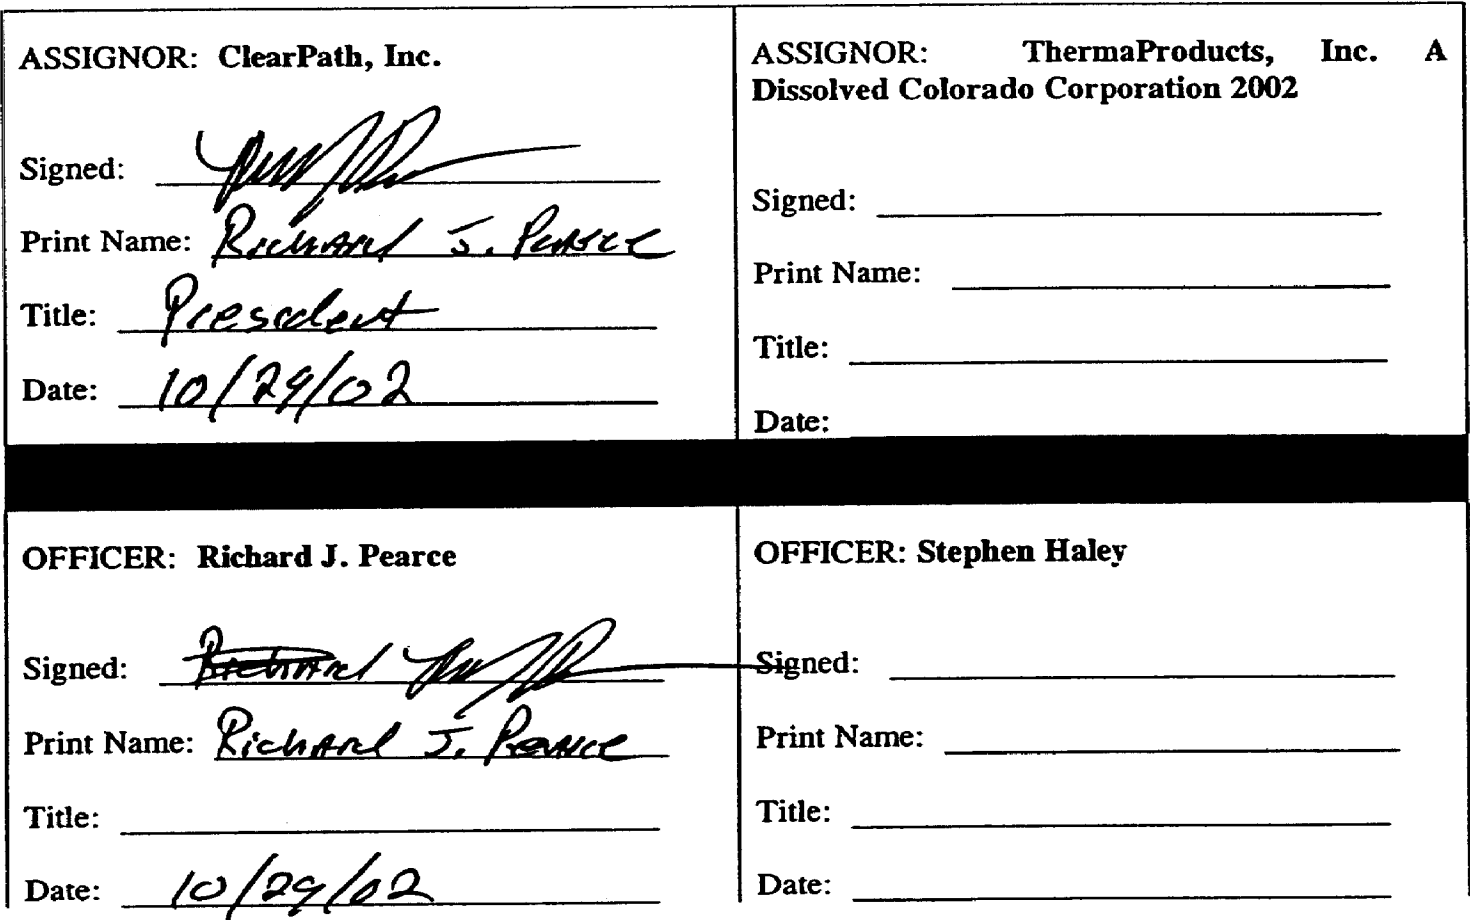 ASSIGNOR: ClearPath, Inc.
Signed:
Print Name: Richard J. Pearce
Title: President
Date: 10/29/02
ASSIGNOR: ThermaProducts, Inc. A
Dissolved Colorado Corporation 2002
Signed:
Print Name:
Title:
Date:
OFFICER: Richard J. Pearce
Signed: Richard
Print Name: Richard J. Pearce
Title:
Date: 10/29/02
OFFICER: Stephen Haley
Signed:
Print Name:
Title:
Date: